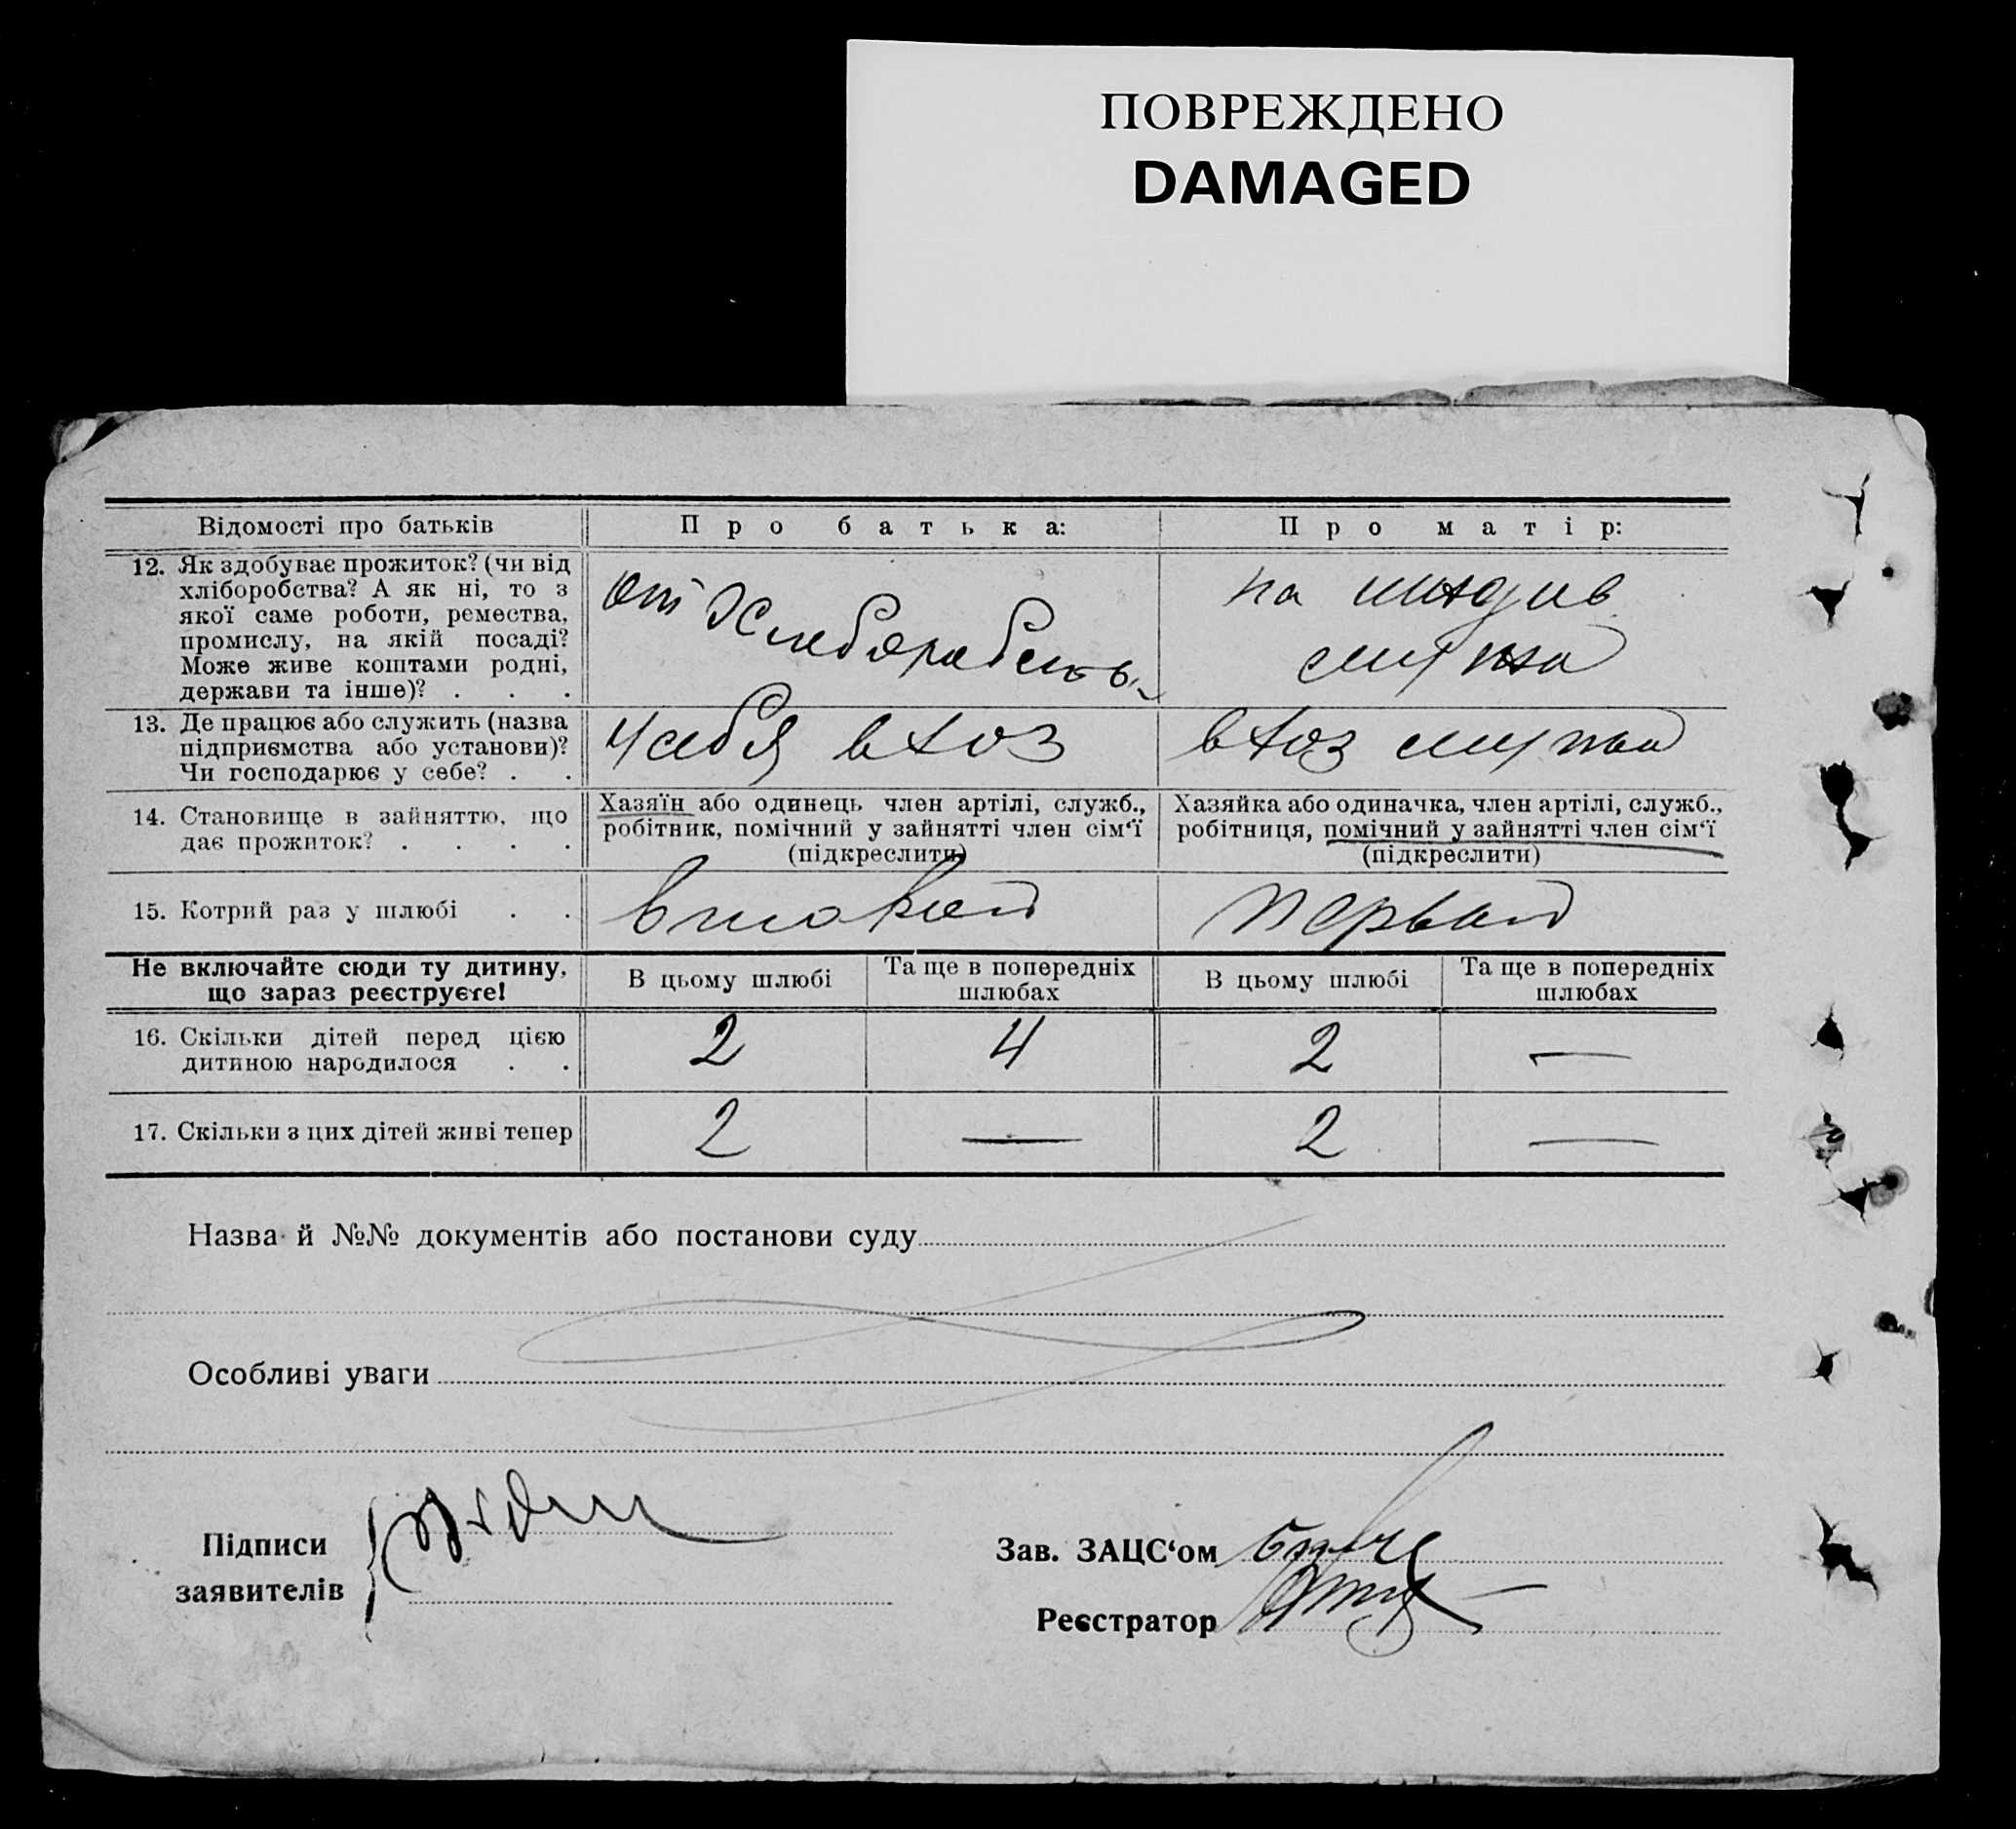 ПОВРЕЖДЕНО
DAMAGED
Відомості про батьків
Про батька:
Про матір:
12. Як здобуває прожиток? (чи від
хліборобства? А як ні, то з
якої саме роботи, ремества,
промислу, на якій посаді?
Може живе коштами родні,
держави та інше)? . . .
от Хлебораб
на иждив
мужа
13. Де працює або служить (назва
підприємства або установи)?
Чи господарює у себе? . .
у себя в хоз
в хоз мужа
14. Становище в зайняттю, що
дає прожиток? . . . .
Хазяїн або одинець член артілі, служб.,
робітник, помічний у зайнятті член сім‘ї
(підкреслити)
Хазяйка або одиначка, член артілі, служб.,
робітниця, помічний у зайнятті член сім‘ї
(підкреслити)
15. Котрий раз у шлюбі . .
второй
первый
Не включайте сюди ту дитину,
що зараз реєструєте!
В цьому шлюбі
Та ще в попередніх
шлюбах
В цьому шлюбі
Та ще в попередніх
шлюбах
16. Скільки дітей перед цією
дитиною народилося . .
2
4
2
—
17. Скільки з цих дітей живі тепер
2
—
2
—
Назва й №№ документів або постанови суду
Особливі уваги
Підписи
заявителів
Зав. ЗАЦС‘ом
Реєстратор